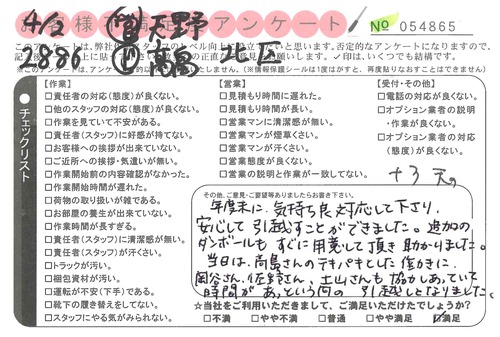 お客様 アンケート
4/2 営 天野
No 054865
2886 作 高島 北区
※このアンケートは作業員には見えません。(情報保護シールは1度はがすと、再度貼りなおすことはできません)
チェックリスト
【作業】
□責任者の対応(態度)が良くない。
□他のスタッフの対応(態度)が良くない。
□作業を見ていて不安がある。
□責任者(スタッフ)に好感が持てない。
□お客様への挨拶が出来ていない。
□ご近所への挨拶・気遣いが無い。
□作業開始前の内容確認がなかった。
□作業開始時間が遅れた。
□荷物の取り扱いが雑である。
□お部屋の養生が出来ていない。
□作業時間が長すぎる。
□責任者(スタッフ)に清潔感が無い。
□責任者(スタッフ)が汗くさい。
□トラックが汚い。
□梱包資材が汚い。
□運転が不安(下手)である。
□靴下の履き替えをしてない。
□スタッフにやる気がみられない。
【営業】
□見積もり時間に遅れた。
□見積もり時間が長い。
□営業マンに清潔感が無い。
□営業マンが煙草くさい。
□営業マンが汗くさい。
□営業態度が良くない。
□営業の説明と作業が一致してない。
【受付・その他】
□電話の対応が良くない。
□オプション業者の説明
・作業が良くない。
□オプション業者の対応
(態度)が良くない。
その他、ご意見・ご要望等ありましたらお書き下さい。
年度末に、気持ち良く対応して下さり、
安心して引越すことができました。追加の
ダンボールもすぐに用意して頂き助かりました。
当日は、高島さんのテキパキとした働きに、
岡谷さん、佐野さん、土山さんも協力しあっていて
時間があっという間の引越しとなりました。
☆当社をご利用いただきまして、ご満足いただけたでしょうか?
□不満 □やや不満 □普通 □やや満足 ☑満足